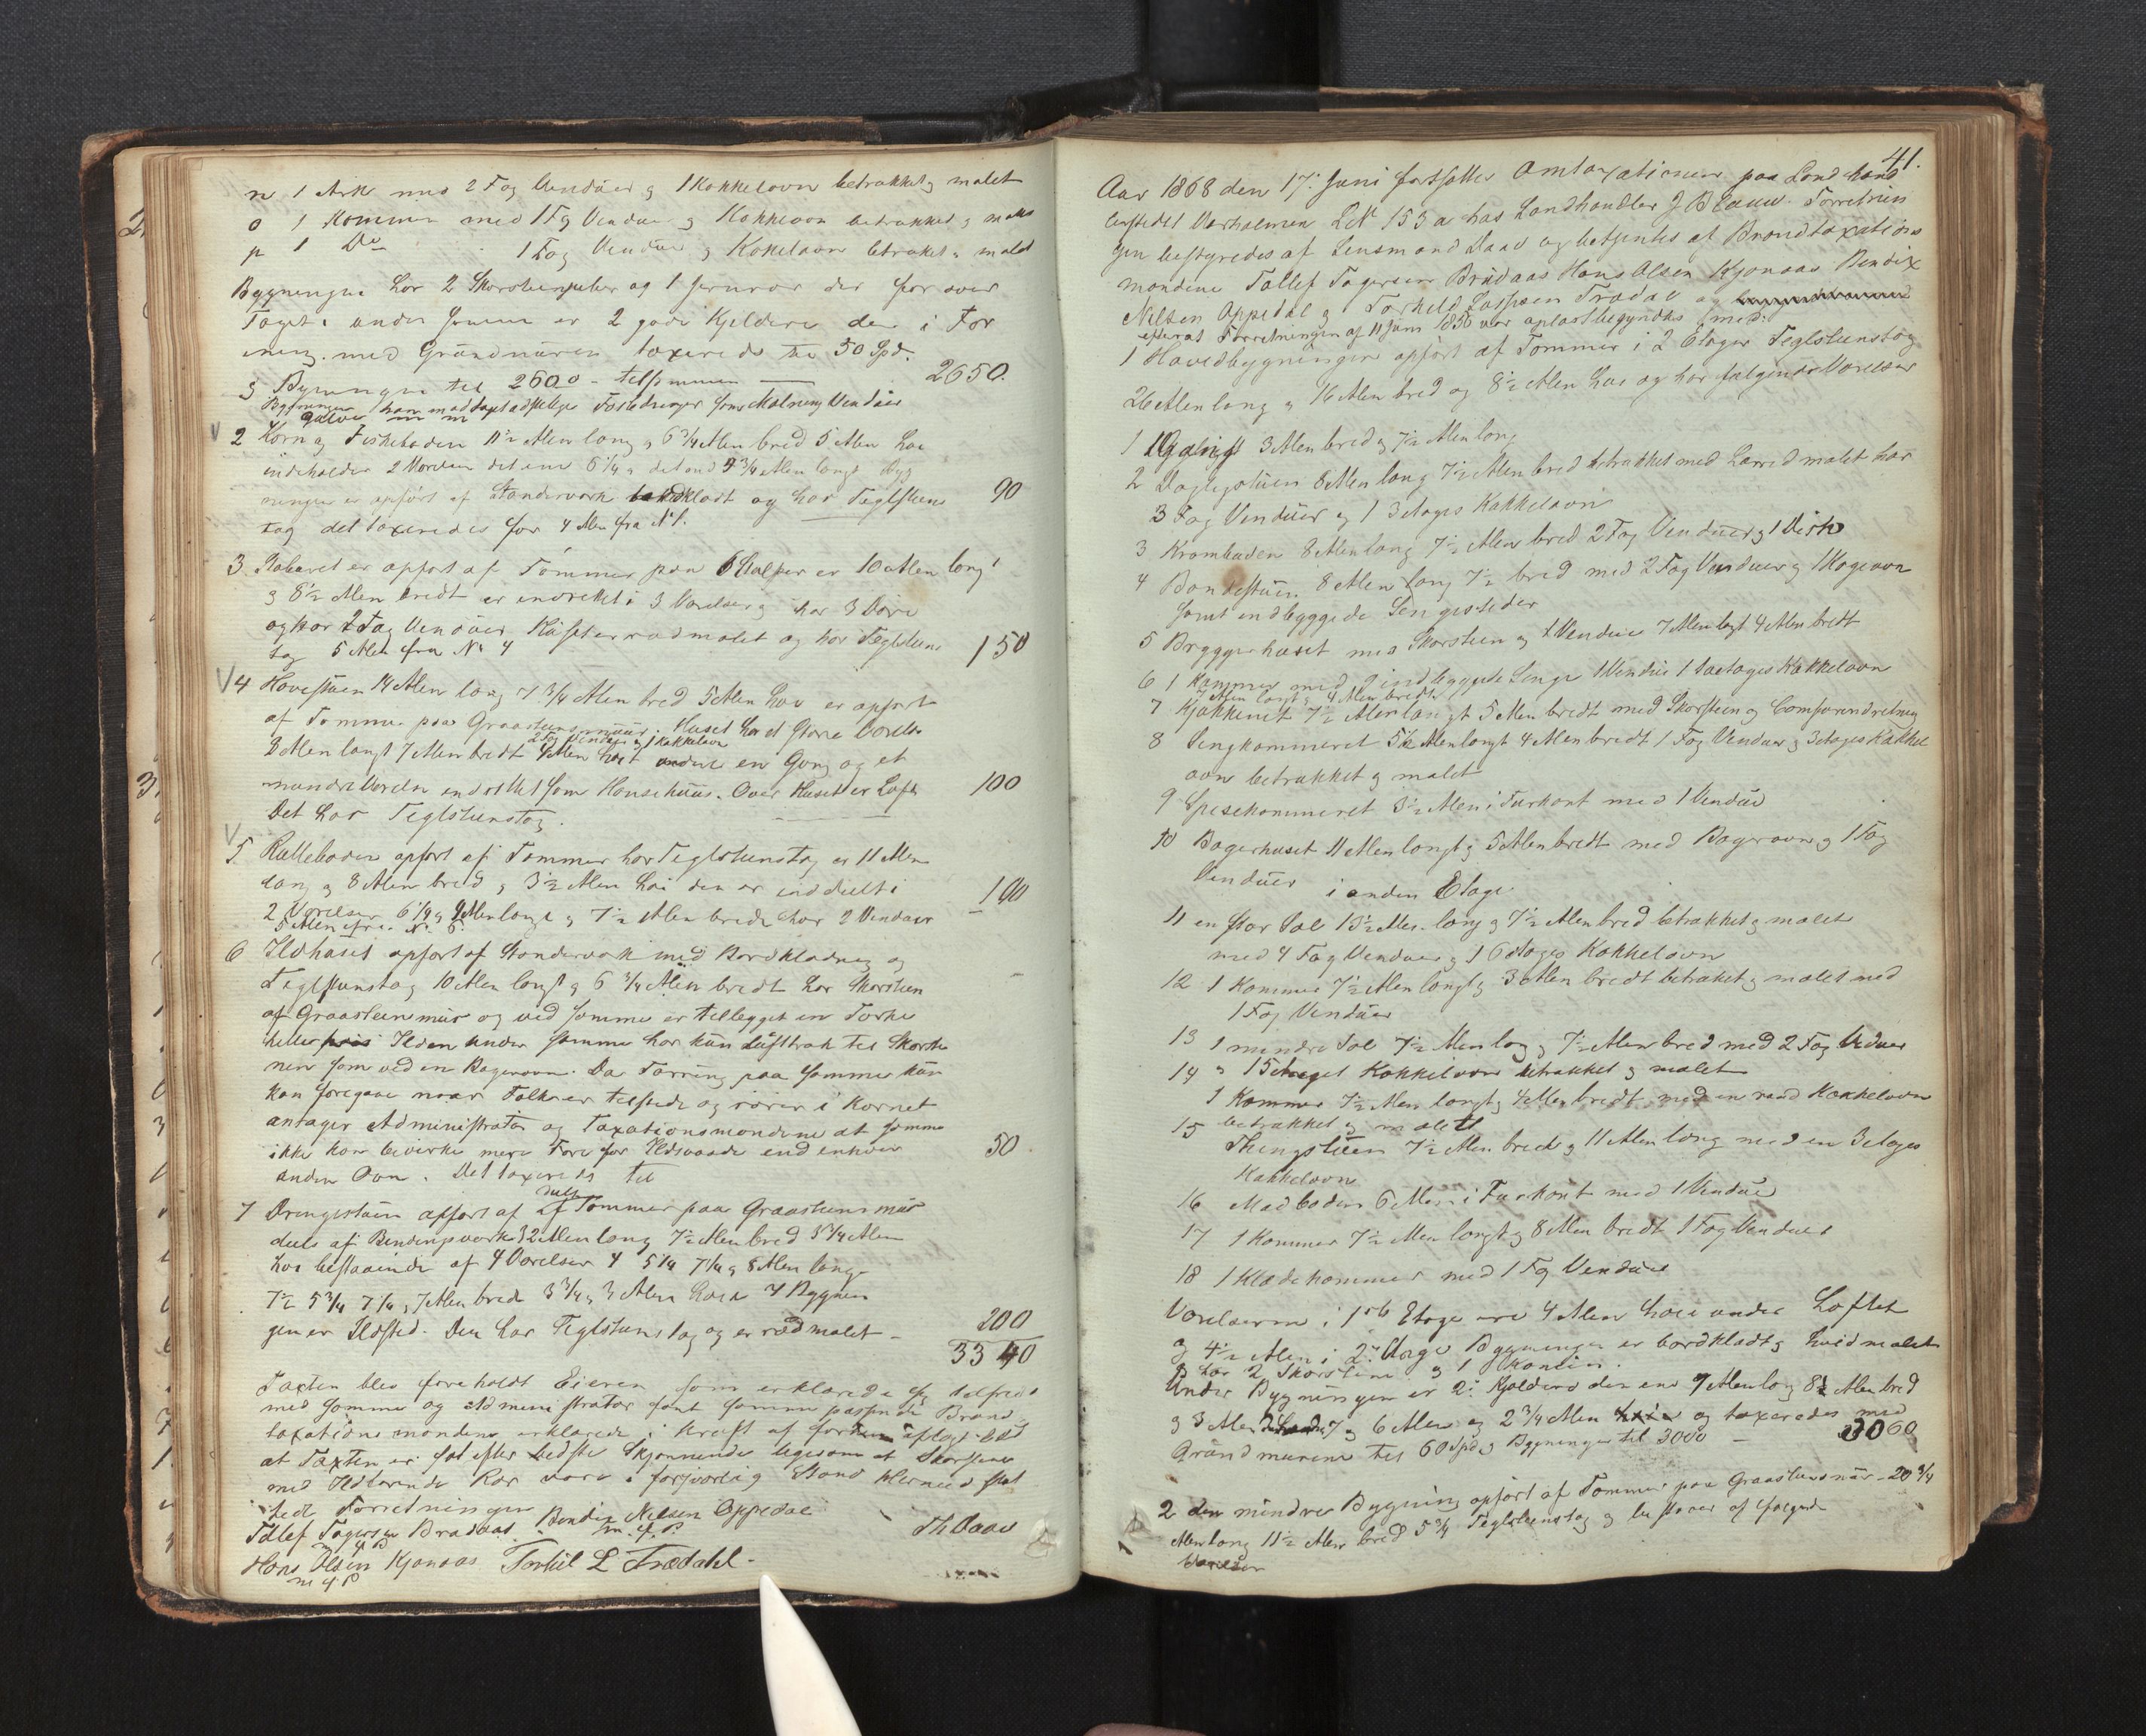 n 1 Ark med 2 Fag Vinduer og 1 Kakkelovn betrækket og malet
o 1 Kammer med 1 Fag Vinduer og Kakkelovn betrækket og malet
p 1 Do 1 Fag Vinduer og Kakelovn betrækket og malet
Bygningen har 2 Skorsteenspiber og 1 Jernrør der gaar over
Taget, under samme er 2 gode Kjeldere der i For
ening med Grundmuren taxeredes til 50 Spd.
og Bygningen til 2600 - tilsammen — 2650.
2 Korn og Fiskeboden 11½ Alen lang og 6¾ Alen bred 5 Alen høi
indeholder 2 Værelser det ene 6¼ og det andet 4¾ Alen langt Byg
ningen er opført af Standerværk bordklædt og har Teglsteens 90
tag det taxeredes for 4 Alen fra No 1.
3 Staburet er opført af Tømmer paa 6 Stolper er 10 Alen langt
og 8½ Alen bredt er indrettet i 3 Værelser og har 3 Døre
og har 2 Fag Vinduer Huset er rødmalet og har Teglsteens
tag 5 Alen fra No 4 150
4 Hovestuen 14 Alen lang 7¾ Alen bred 5 Alen høi er opført
af Tømmer paa Graasteensmuur. Huset har et større Værelse
2 Fag Vinduer og 1 Kakkelovn
8 Alen langt 7 Alen bredt 4 Alen høit endvidere en Gang og et
mindre Værelse indrettet som Hønsehuus. Over Huset er Loft 100
Det har Teglsteenstag.
5 Rulleboden opført af Tømmer har Teglsteenstag er 11 Alen
lang og 8 Alen bred og 3½ Alen høi den er inddeelt i 100
2 Værelser 6¼ og 4 Alen lange og 7½ Alen brede har 2 Vinduer
5 Alen fra No 6
6 Ildhuset opført af Standerværk med Bordklædning og
Teglsteenstag 10 Alen langt og 6¾ Alen bredt har Skorsteen
af Graasteensmuur og ved samme er tillagt en Tørke
helle Ilden under samme har kun Lufttræk til Skorste
nen som ved en Bagerovn. Da Tørring paa samme kun
kan foregaae naar Folk er tilstede og rører i Kornet
antager Administrator og Taxationsmændene at samme
ikke kan bevirke mere Fare for Ildsvaade end enhver 50
anden Ovn. Det taxeredes til
7 Drengestuen opført af deels Tømmer paa Graasteensmuur
deels af Bindingsværk 32 Alen lang 7½ Alen bred 5¼ Alen
høi bestaaende af 4 Værelser 4 5¼ 7¼ og 8 Alen lange
7½ 5¾ 7¼ og 7 Alen brede 3¾ og 3 Alen høie I Bygnin
gen er Ildsted. Den har Teglsteenstag og er rødmalet - 200
3340
Taxten blev foreholdt Eieren som erklærede sig tilfreds
med samme og Administrator fandt samme passende Brand
taxationsmændene erklærede i Kraft af forhen aflagt Eed
at Taxten er sat efter bedste Skjønnende ligesom at Skorstene
med Ildførende Rør vare i forsvarlig Stand Hermed slut
tedes Forretningen
Th Daae
Tollef Tagesen Bradaas Bendix Nielsen Oppedal
m. f. P. m. f. P.
Hans Olsen Kjønaas Torkil L Trædahl
m. f. P.
41.
Aar 1868 den 17. Juni fortsattes Omtaxationen paa Landhand
lerstedet Varholmen LN 153 a hos Landhandler J B Lauw. Forretnin
gen bestyredes af Lensmand Daae og betjentes af Brandtaxations
mændene Tollef Tagesen Bradaas Hans Olsen Kjønaas Bendix
Nilsen Oppedal og Torkild Lassesen Trædal og
efter at Forretningen af 11 Juni 1850 var oplæst begyndtes med:
1 Hovedbygningen opført af Tømmer i 2 Etager Teglsteenstag
26 Alen lang og 16 Alen bred og 8½ Alen høi og har følgende Værelser
1 1 Gang 3 Alen bred og 7½ Alen lang
2 Dagligstuen 8 Alen lang 7½ Alen bred betrækket med Lærred malet har
3 Fag Vinduer og 1 3 Etages Kakkelovn
3 Kramboden 8 Alen lang 7½ Alen bred 2 Fag Vinduer og 1 Disk
4 Bondestuen 8 Alen lang 7½ bred med 2 Fag Vinduer og 1 Kogeovn
samt indbyggede Sengesteder
5 Bryggerhuset med Skorsteen og 1 Vindue 7 Alen langt 4 Alen bredt
6 1 Kammer med 2 indbyggede Senge 1 Vindue 1 to etages Kakkelovn
7 Alen langt og 4 Alen bredt
7 Kjøkkenet 7½ Alen langt 5 Alen bredt med Skorsteen og Comfurindretning
8 Sengkammeret 5½ Alen langt 4 Alen bredt 1 Fag Vinduer og 3 etages Kakkel
ovn betrækket og malet
9 Spisekammeret 3½ Alen i Fiirkant med 1 Vindue
10 Bagerhuset 11 Alen langt og 5 Alen bredt med Bagerovn og 1 Fag
Vinduer i anden Etage
11 en stor Sal 13½ Alen lang og 7½ Alen bred betrækket og malet
med 4 Fag Vinduer og 1 6 Etages Kakkelovn
12 1 Kammer 7½ Alen langt og 3 Alen bredt betrækket og malet med
1 Fag Vinduer
13 1 mindre Sal 7½ Alen lang og 7½ Alen bred med 2 Fag Vinduer
14 og 1 5 Etages Kakkelovn betrækket og malet
1 Kammer 7½ Alen langt og 4 Alen bredt med en rund Kakkelovn
15 betrækket og malet
Thingstuen 7½ Alen bred og 11 Alen lang med en 3 etages
Kakkelovn
16 Madboden 6 Alen i Fiirkant med 1 Vindue
17 1 Kammer 7½ Alen langt og 8 Alen bredt 1 Fag Vinduer
18 1 Klædekammer med 1 Fag Vinduer
Værelserne i 1ste Etage ere 4 Alen høie under Loftet
og 4½ Alen i 2. Etage Bygningen er bordklædt og hvidmalet
og har 2 Skorstene og 1
Under Bygningen er 2 Kjeldere den ene 9 Alen lang 8½ Alen bred
og 3 Alen 7 og 6 Alen og 2¾ Alen og taxeredes med
Grundmurene til 60 Spd og Bygningen til 3000 — 3060
2 den mindre Bygning opført af Tømmer paa Graasteensmuur 20¾
Alen lang 11½ Alen bred 5¾ Teglsteenstag og bestaaer af følgende
Værelser